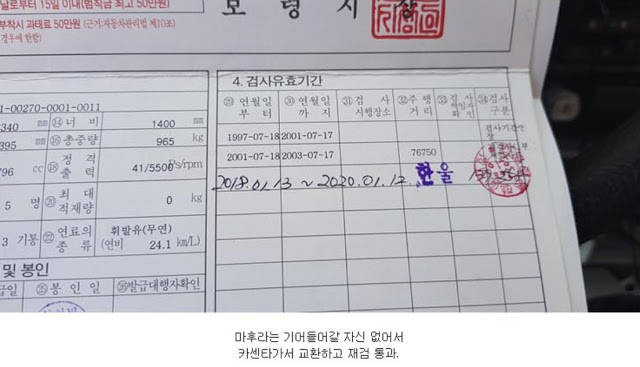 날로부터 15일 이내(범칙금 최고 50만원)
부착시 과태료 50만원 (근거:자동차관리법 제10조)
경우에 한함)
보 령 시 장
4. 검사유효기간
㉙ 연월일 부 터
㉚ 연월일 까 지
㉛ 검 사 시행장소
㉜ 주 행 거 리
㉝ 검 사 책임자 확 인
㉞ 검 사 구 분
1-00270-0001-0011
340 mm ⑭ 너 비 1400 mm
395 mm ⑯ 총중량 965 kg
796 cc ⑱ 정 격 출 력 41/5500 Ps/rpm
5 명 ⑳ 최 대 적재량 0 kg
3 기통 ㉒ 연료의 종 류 휘발유(무연) (연비 24.1 km/L)
1997-07-18 2001-07-17
2001-07-18 2003-07-17 76750
2018.01.13 ~ 2020.01.12 한울
및 봉인
급일 ㉕ 봉 인 일 ㉖ 발급대행자확인
마후라는 기어들어갈 자신 없어서
카센타가서 교환하고 재검 통과.